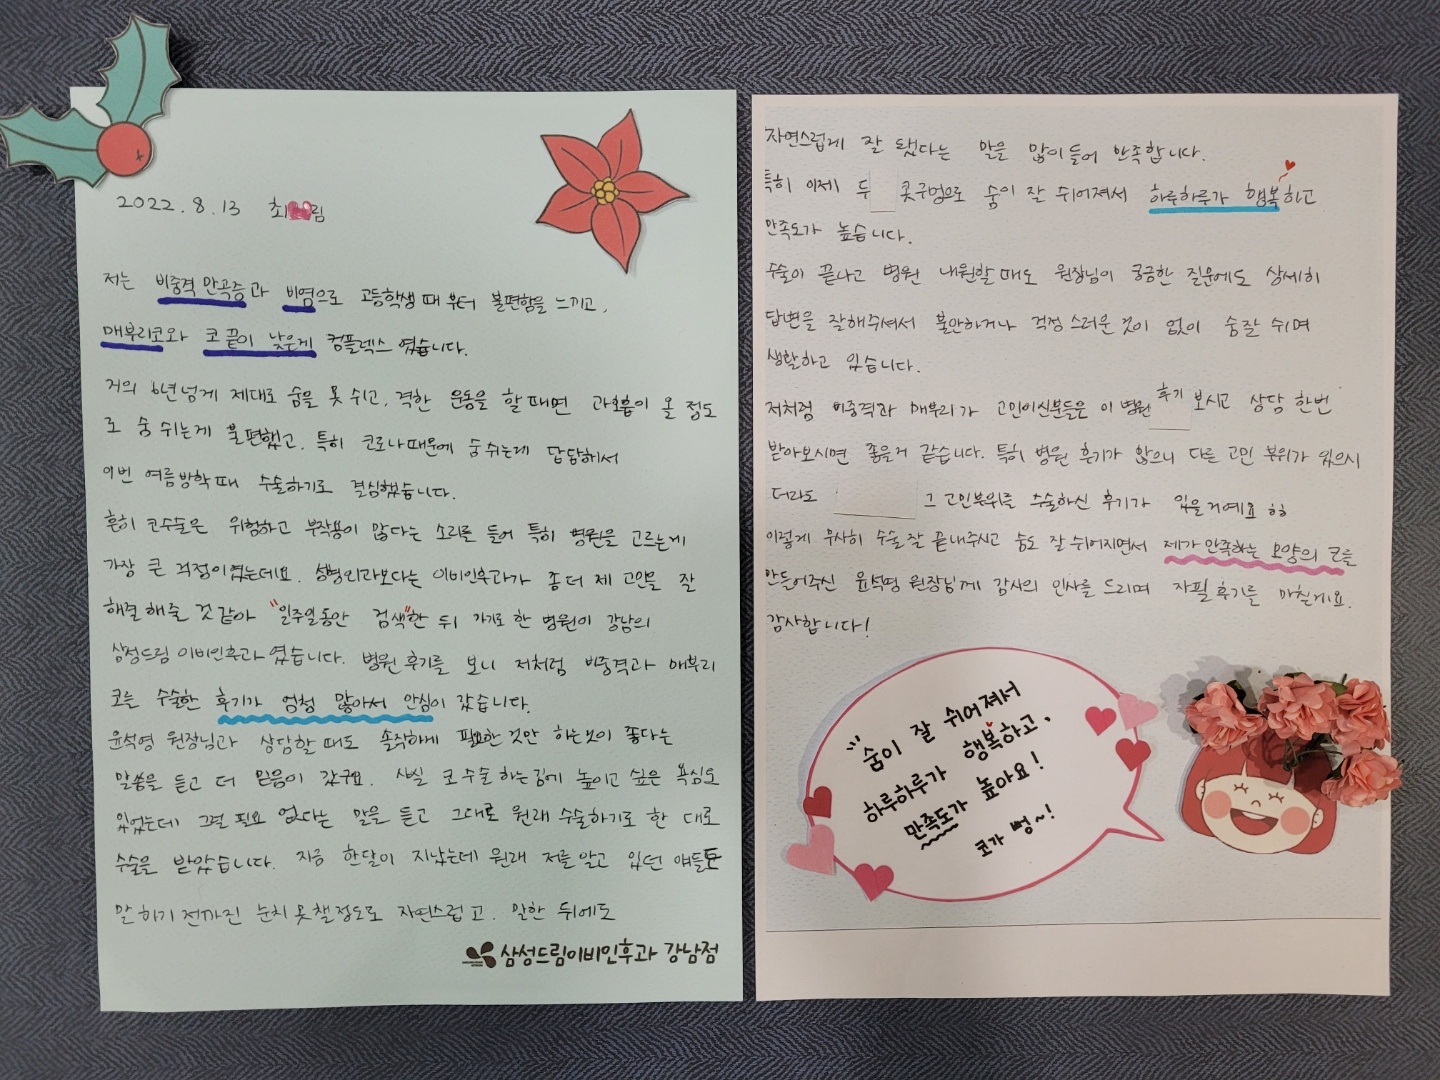 2022.8.13 최 림
저는 비중격 만곡증과 비염으로 고등학생 때 부터 불편함을 느끼고,
매부리코와 코 끝이 낮은게 컴플렉스 였습니다.
거의 6년넘게 제대로 숨을 못 쉬고, 격한 운동을 할 때면 과호흡이 올 정도
로 숨 쉬는게 불편했고, 특히 코로나때문에 숨쉬는데 답답해서
이번 여름방학 때 수술하기로 결심했습니다.
흔히 코수술은 위험하고 부작용이 많다는 소리를 들어 특히 병원을 고르는게
가장 큰 걱정이였는데요. 성형외과보다는 이비인후과가 좀 더 제 고민을 잘
해결 해줄 것 같아 "일주일동안 검색"한 뒤 가기로 한 병원이 강남의
삼성드림 이비인후과 였습니다. 병원 후기를 보니 저처럼 비중격과 매부리
코를 수술한 후기가 엄청 많아서 안심이 갔습니다.
윤석영 원장님과 상담할 때도 솔직하게 필요한 것만 하는것이 좋다는
말씀을 듣고 더 믿음이 갔구요. 사실 코 수술 하는김에 높이고 싶은 욕심도
있었는데 그럴 필요 없다는 말을 듣고 그대로 원래 수술하기로 한 대로
수술을 받았습니다. 지금 한달이 지났는데 원래 저를 알고 있던 애들도
말 하기 전까진 눈치 못챌정도로 자연스럽고, 말한 뒤에도
삼성드림이비인후과 강남점
자연스럽게 잘 됐다는 말을 많이 들어 만족합니다.
특히 이제 두 콧구멍으로 숨이 잘 쉬어져서 하루하루가 행복하고
만족도가 높습니다.
수술이 끝나고 병원 내원할 때도 원장님이 궁금한 질문에도 상세히
답변을 잘해주셔서 불안하거나 걱정 스러운 것이 없이 숨잘 쉬며
생활하고 있습니다.
저처럼 비중격과 매부리가 고민이신분들은 이 병원 후기 보시고 상담 한번
받아보시면 좋을거 같습니다. 특히 병원 후기가 많으니 다른 고민 부위가 있으시
더라도 그 고민부위를 수술하신 후기가 있을거예요 ㅎㅎ
이렇게 무사히 수술 잘 끝내주시고 숨도 잘 쉬어지면서 제가 만족하는 모양의 코를
만들어주신 윤석영 원장님께 감사의 인사를 드리며 자필 후기를 마칠게요.
감사합니다!
숨이 잘 쉬어져서
하루하루가 행복하고,
만족도가 높아요!
코가 뻥~!